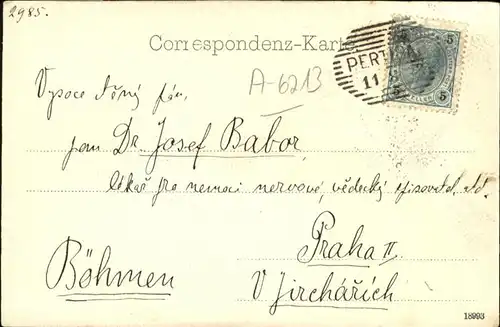 2985.
Correspondenz-Karte
PERT
11
5 5
A-6213
Vysoce ctěný pán,
pan Dr. Josef Babor,
lékař pro nemoci nervové, vědecký spisovatel atd.
Praha II
Böhmen
V Jirchářích
18993